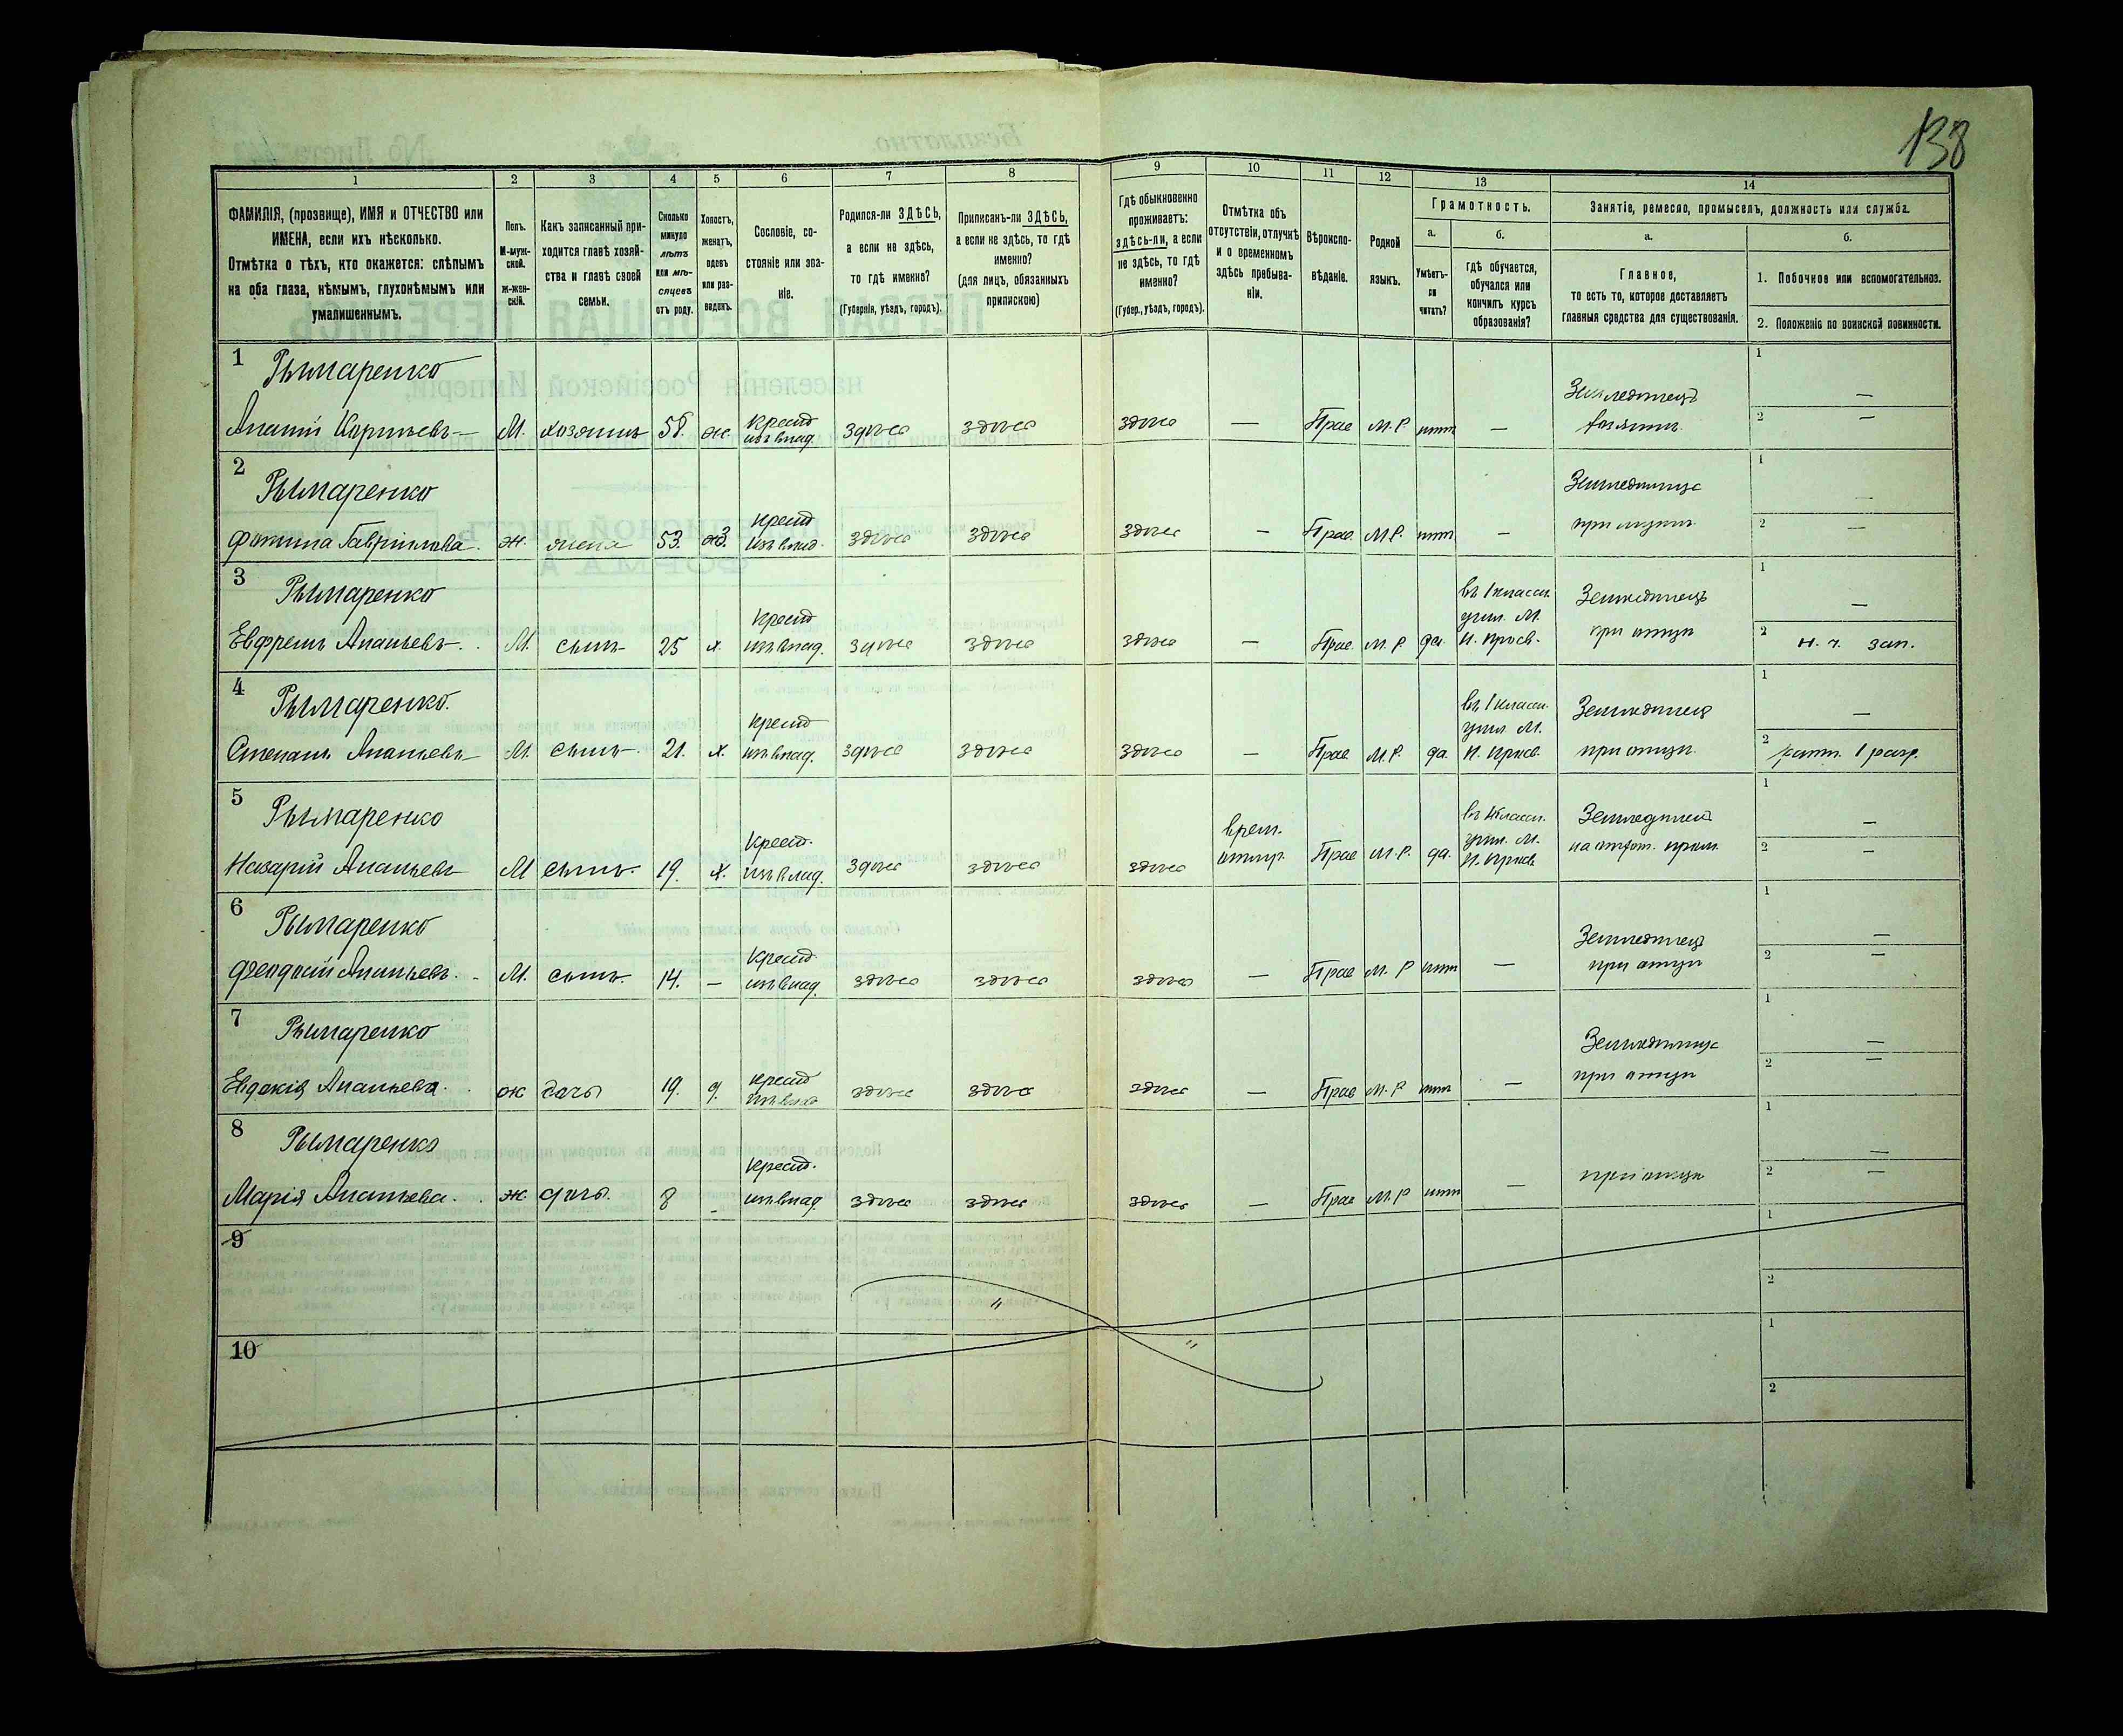 138
1 2 3 4 5 6 7 8 9 10 11 12 13 14
ФАМИЛІЯ, (прозвище), ИМЯ и ОТЧЕСТВО или
ИМЕНА, если ихъ нѣсколько.
Отмѣтка о тѣхъ, кто окажется: слѣпымъ
на оба глаза, нѣмымъ, глухонѣмымъ или
умалишеннымъ.
Полъ.
М-муж-
ской.
ж-жен-
скій.
Какъ записанный при-
ходится главѣ хозяй-
ства и главѣ своей
семьи.
Сколько
минуло
лѣтъ
или мѣ-
сяцевъ
отъ роду.
Холостъ,
женатъ,
вдовъ
или раз-
веденъ.
Сословіе, со-
стояніе или зва-
ніе.
Родился-ли ЗДѢСЬ,
а если не здѣсь,
то гдѣ именно?
(Губернія, уѣздъ, городъ).
Приписанъ-ли ЗДѢСЬ,
а если не здѣсь, то гдѣ
именно?
(для лицъ, обязанныхъ
припискою)
Гдѣ обыкновенно
проживаетъ:
здѣсь-ли, а если
не здѣсь, то гдѣ
именно?
(Губер., уѣздъ, городъ).
Отмѣтка объ
отсутствіи, отлучкѣ
и о временномъ
здѣсь пребыва-
ніи.
Вѣроиспо-
вѣданіе.
Родной
языкъ.
Грамотность.
а.
Умѣетъ-
ли
читать?
б.
гдѣ обучается,
обучался или
кончилъ курсъ
образованія?
Занятіе, ремесло, промыселъ, должность или служба.
а.
Главное,
то есть то, которое доставляетъ
главныя средства для существованія.
б.
1. Побочное или вспомогательное.
2. Положеніе по воинской повинности.
1 Рымаренко
Ананій Карпьевъ М. хозяинъ 58. ж. крест. изъ влад. здѣсь здѣсь здѣсь — Прав М.Р. нѣтъ — Земледѣлецъ хозяинъ 1 — 2 —
2 Рымаренко
Фотина Гавріилова ж. жена 53. з. крест изъ влад. здѣсь здѣсь здѣсь — Прав. М.Р. нѣтъ — Земледѣлица при мужѣ 1 — 2 —
3 Рымаренко
Евфремъ Ананьевъ М. сынъ 25 х. крест изъ влад. здѣсь здѣсь здѣсь — Прав. М.Р. да въ 1 класн. учил. М. Н. Просв. Земледѣлецъ при отцѣ 1 — 2 н. ч. зап.
4 Рымаренко.
Степанъ Ананьевъ М. сынъ 21. х. крест изъ влад. здѣсь здѣсь здѣсь — Прав М.Р. да. въ 1 класн. учил М. Н. Просв. Земледѣлецъ при отцѣ 1 — 2 ратн. 1 разр.
5 Рымаренко
Назарій Ананьевъ М сынъ 19. х. крест. изъ влад. здѣсь здѣсь здѣсь врем. отлуч. Прав М.Р. да. въ 1 класн. учил. М. Н. Просв. Земледѣлецъ 1 — 2 —
6 Рымаренко
Феодосій Ананьевъ М. сынъ. 14. — крест изъ влад. здѣсь здѣсь здѣсь — Прав М. Р нѣтъ — Земледѣлецъ при отцѣ 1 — 2 —
7 Рымаренко
Евдокія Ананьева ж дочь 19. д. крест изъ влад здѣсь здѣсь здѣсь — Прав М. Р нѣтъ — Земледѣлица при отцѣ 1 — 2 —
8 Рымаренко
Марія Ананьева ж дочь. 8 — крест. изъ влад здѣсь здѣсь здѣсь — Прав М.Р нѣтъ — при отцѣ 1 — 2 —
9 1 2
10 1 2